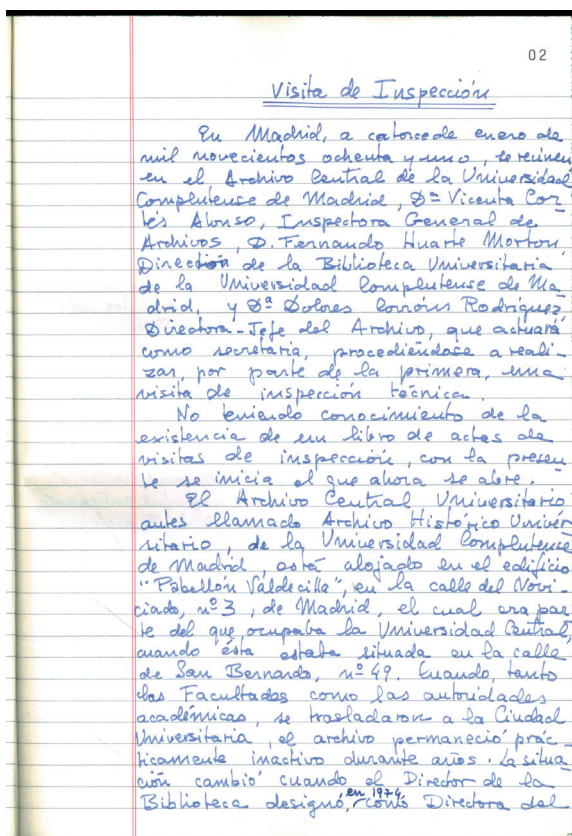 02
Visita de Inspección
En Madrid, a catorce de enero de
mil novecientos ochenta y uno, se reúnen
en el Archivo Central de la Universidad
Complutense de Madrid, Dª Vicenta Cor-
tés Alonso, Inspectora General de
Archivos, D. Fernando Huarte Morton,
Director de la Biblioteca Universitaria
de la Universidad Complutense de Ma-
drid, y Dª Dolores Rodríguez,
Directora-Jefe del Archivo, que actuará
como secretaria, procediéndose a reali-
zar, por parte de la primera, una
visita de inspección técnica.
No teniendo conocimiento de la
existencia de un libro de actas de
visitas de inspección, con la presen-
te se inicia el que ahora se abre.
El Archivo Central Universitario
antes llamado Archivo Histórico Univer-
sitario, de la Universidad Complutense
de Madrid, está alojado en el edificio
"Pabellón Valdecilla", en la calle del Novi-
ciado, nº 3, de Madrid, el cual era par-
te del que ocupaba la Universidad Central,
cuando ésta estaba situada en la calle
de San Bernardo, nº 49. Cuando, tanto
las Facultades como las autoridades
académicas, se trasladaron a la Ciudad
Universitaria, el archivo permaneció prác-
ticamente inactivo durante años. La situa-
ción cambió cuando el Director de la
Biblioteca designó, en 1974, como Directora del